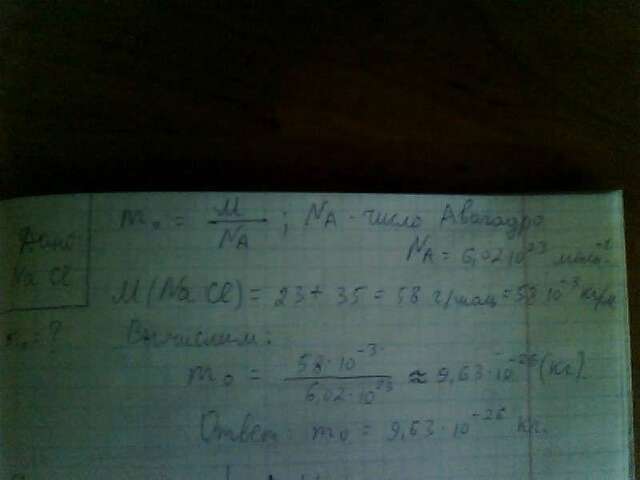 Дано
NaCl
m₀ = ?
m₀ = M / N_A ; N_A - число Авагадро
N_A = 6,02·10²³ моль⁻¹
M(NaCl) = 23 + 35 = 58 г/моль = 58·10⁻³ кг/м
Вычислим:
m₀ = 58·10⁻³ / 6,02·10²³ ≈ 9,63·10⁻²⁶ (кг).
Ответ: m₀ = 9,63·10⁻²⁶ кг.